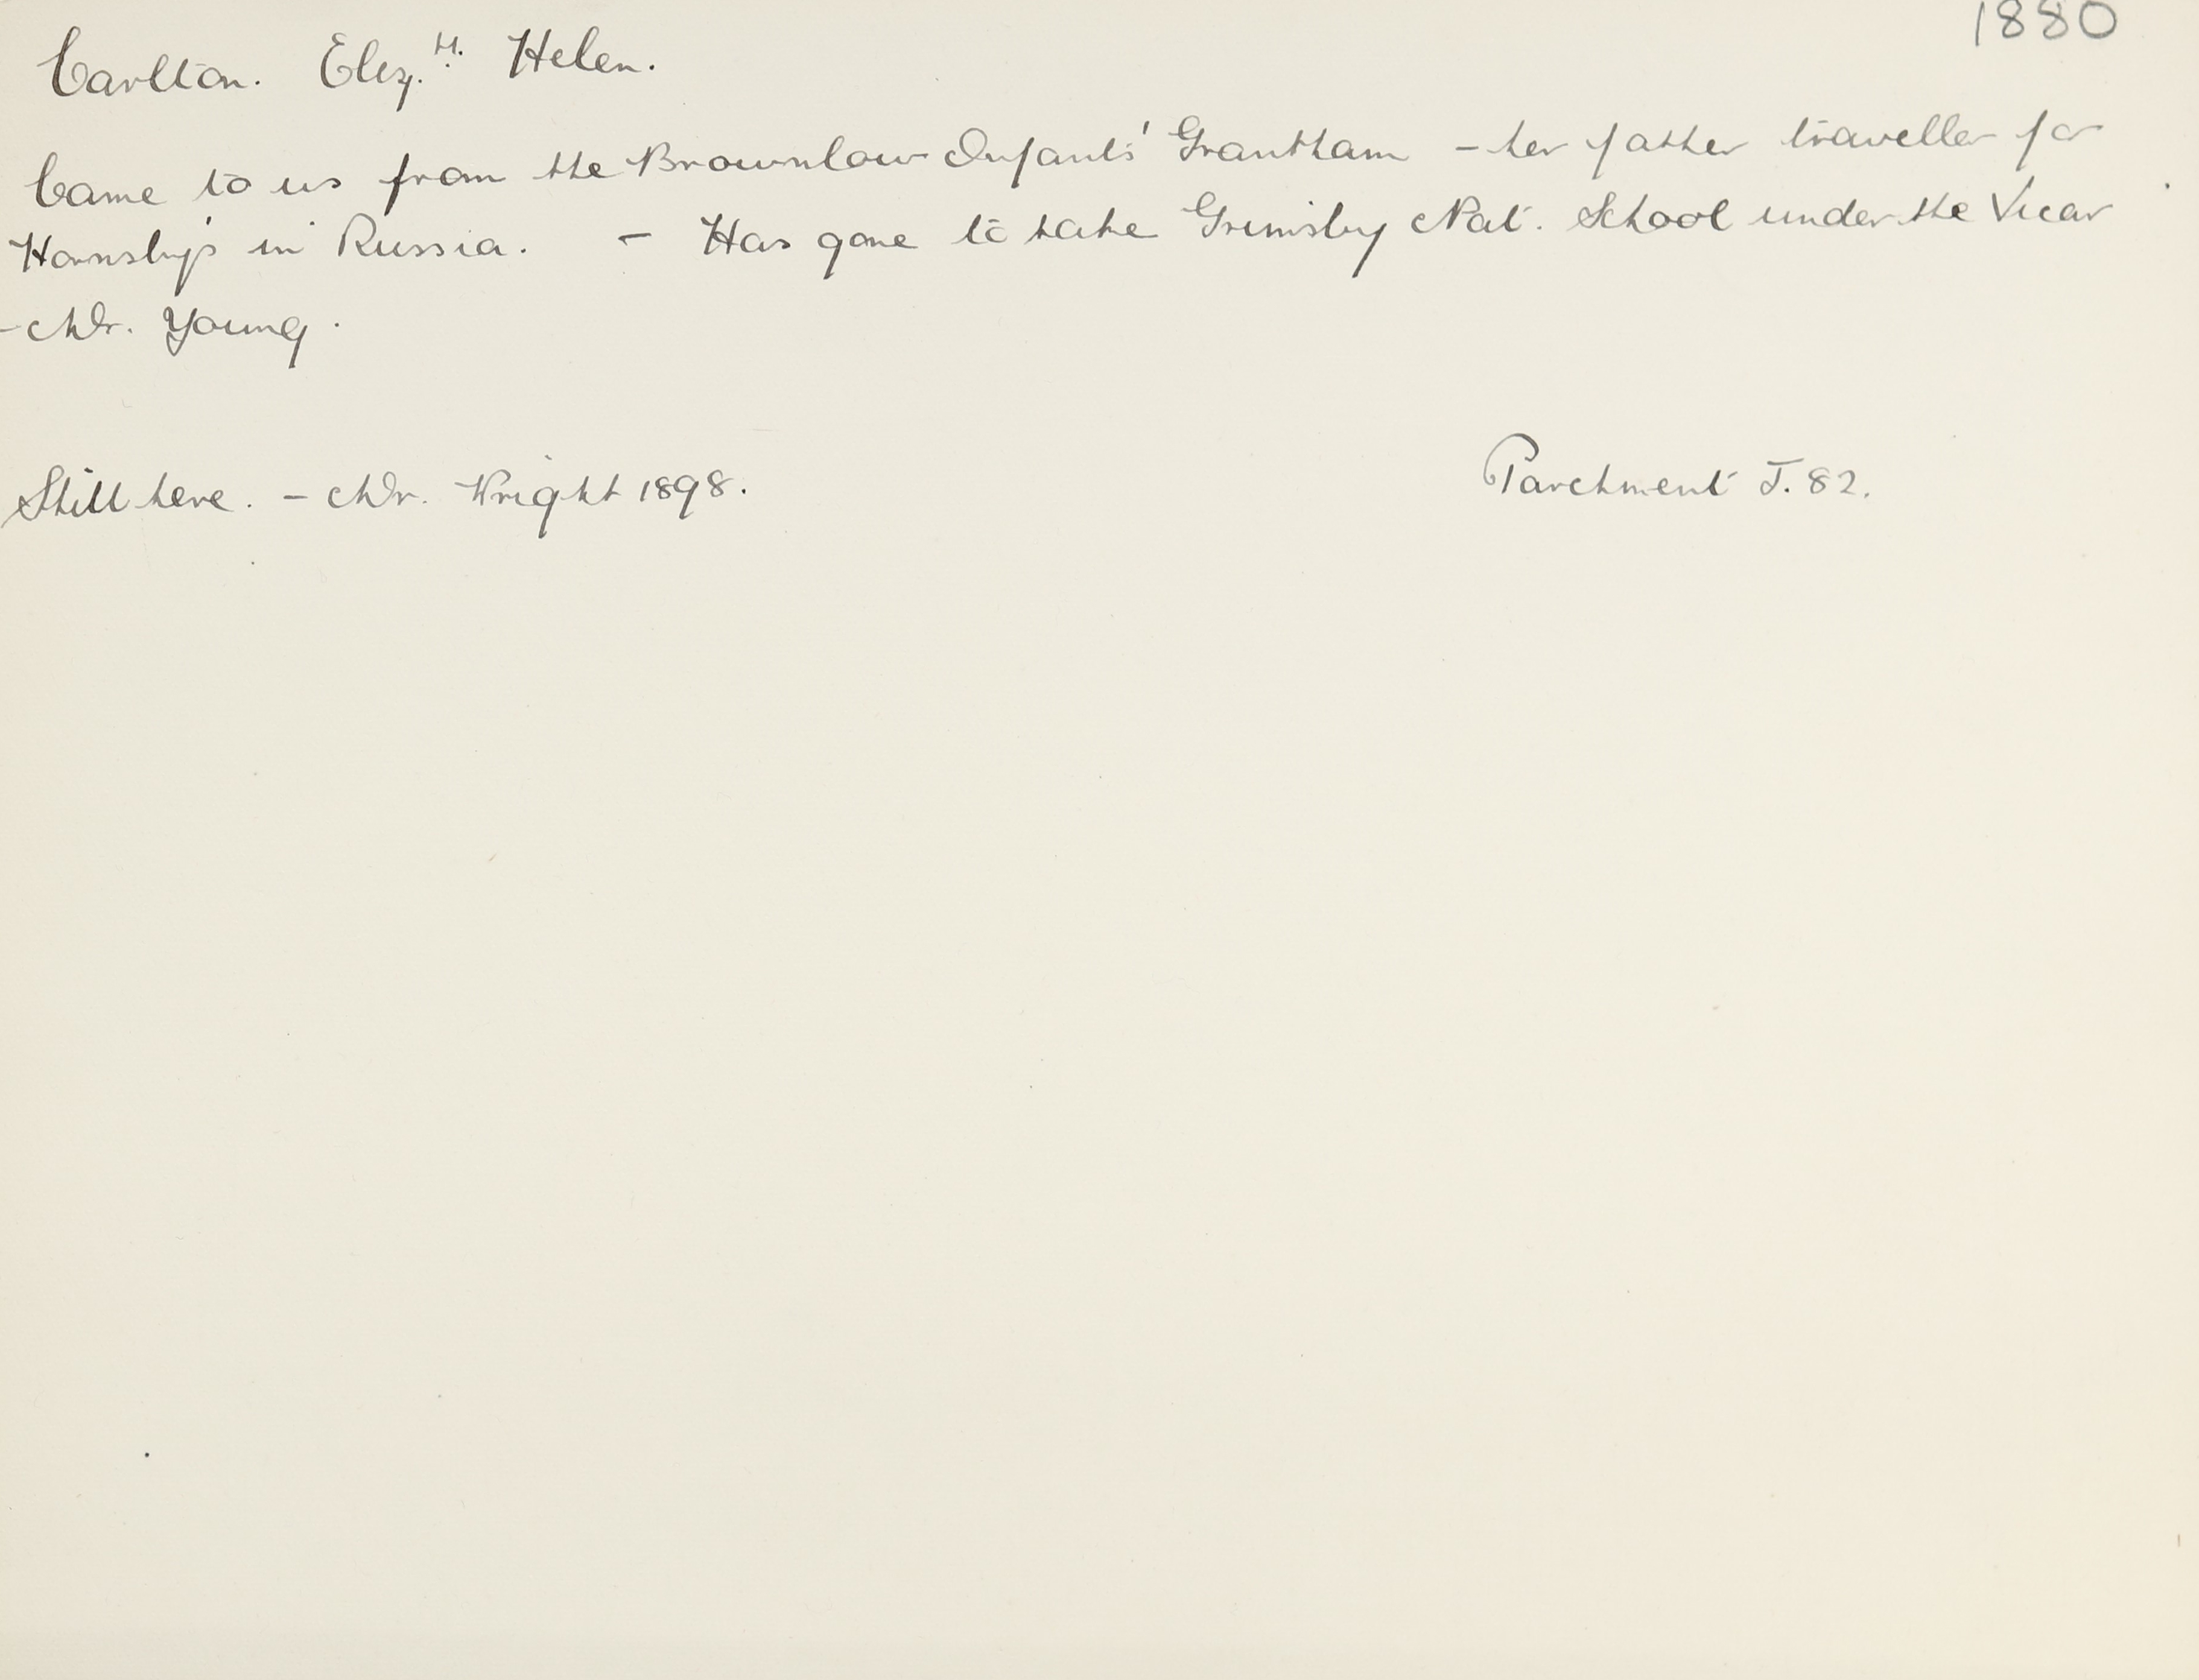 1880
Carlton. Eliz.th. Helen.
Came to us from the Brownlow Infants' Grantham - her father traveller for
Hornsby's in Russia. - Has gone to take Grimsby Nat. School under the Vicar
- Mr. Young.
Still here. - Mr. Wright 1898.
Parchment J. 82.